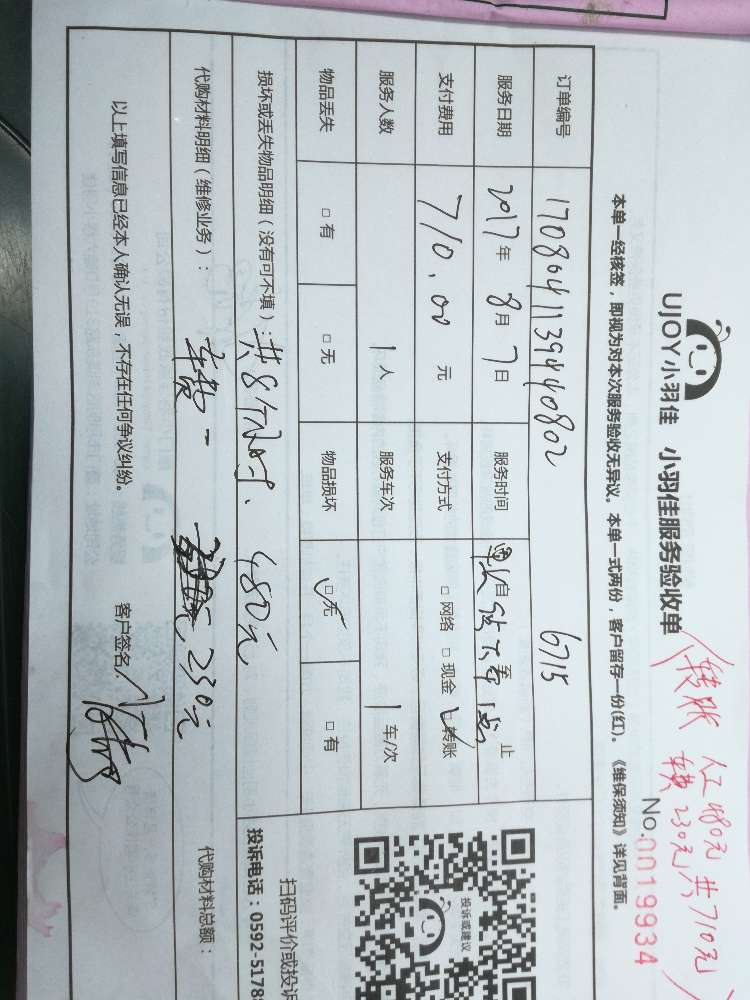 转账 人工480元 共710元
车费230元
UJOY小羽佳 小羽佳服务验收单
No.0019934
本单一经核签，即视为对本次服务验收无异议。本单一式两份，客户留存一份(红)。《维保须知》详见背面。
订单编号 17080411394440802 6715
服务日期 2017年8月7日 服务时间 自 至 止
支付费用 710.00元 支付方式 □网络 □现金 ☑转账
服务人数 1人 服务车次 1车/次
物品丢失 □有 □无 物品损坏 ☑无 □有
损坏或丢失物品明细（没有可不填）：共8个小时、480元
代购材料明细（维修业务）： 车费一 230元
代购材料总额：
以上填写信息已经本人确认无误，不存在任何争议纠纷。 客户签名：
投诉或建议
扫码评价或投诉
投诉电话：0592-5178